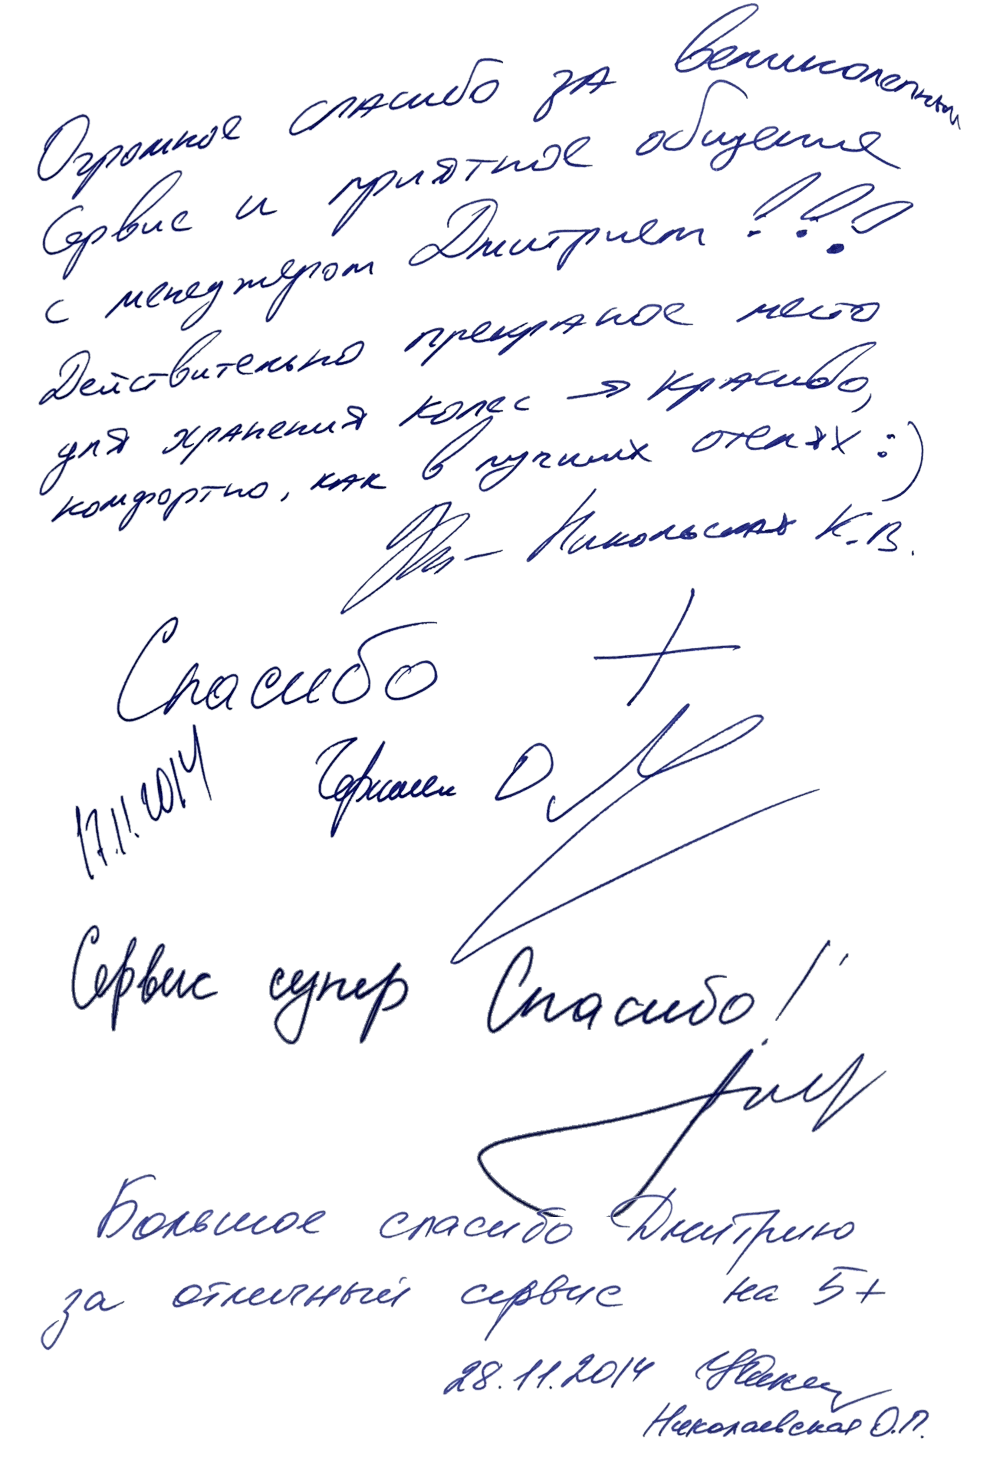 Огромное спасибо за великолепный
Сервис и приятное общение
с менеджером Дмитрием!!!
Действительно прекрасное место
для хранения колес → красиво,
комфортно, как в лучших отелях :)
Никольская К.В.
Спасибо +
17.11.2014
О
Сервис супер Спасибо!
Большое спасибо Дмитрию
за отличный сервис на 5+
28.11.2014
Николаевская О.П.